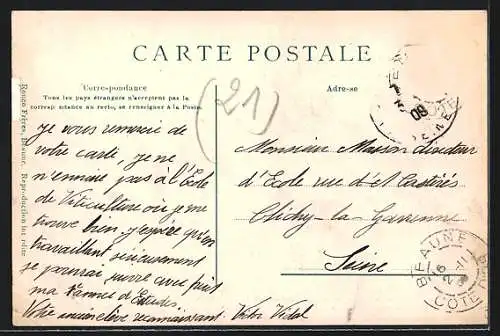 CARTE POSTALE
Correspondance
Tous les pays étrangers n'acceptent pas la
correspondance au recto, se renseigner à la Poste.
Adresse
(21)
08
Je vous remercie de
votre carte, je ne
m'ennuie pas à l'Ecole
de Viticulture où je me
trouve bien. j'espère qu'en
travaillant sérieusement
je pourrai suivre avec fruit
ma 1re année d'Etudes.
Votre ancien élève reconnaissant. Victor Vidal
Monsieur Masson Directeur
d'Ecole rue d'
Clichy-la-Garenne
Seine
BEAUNE
CÔTE D'OR
Ronco Frères, Beaune. Reproduction interdite